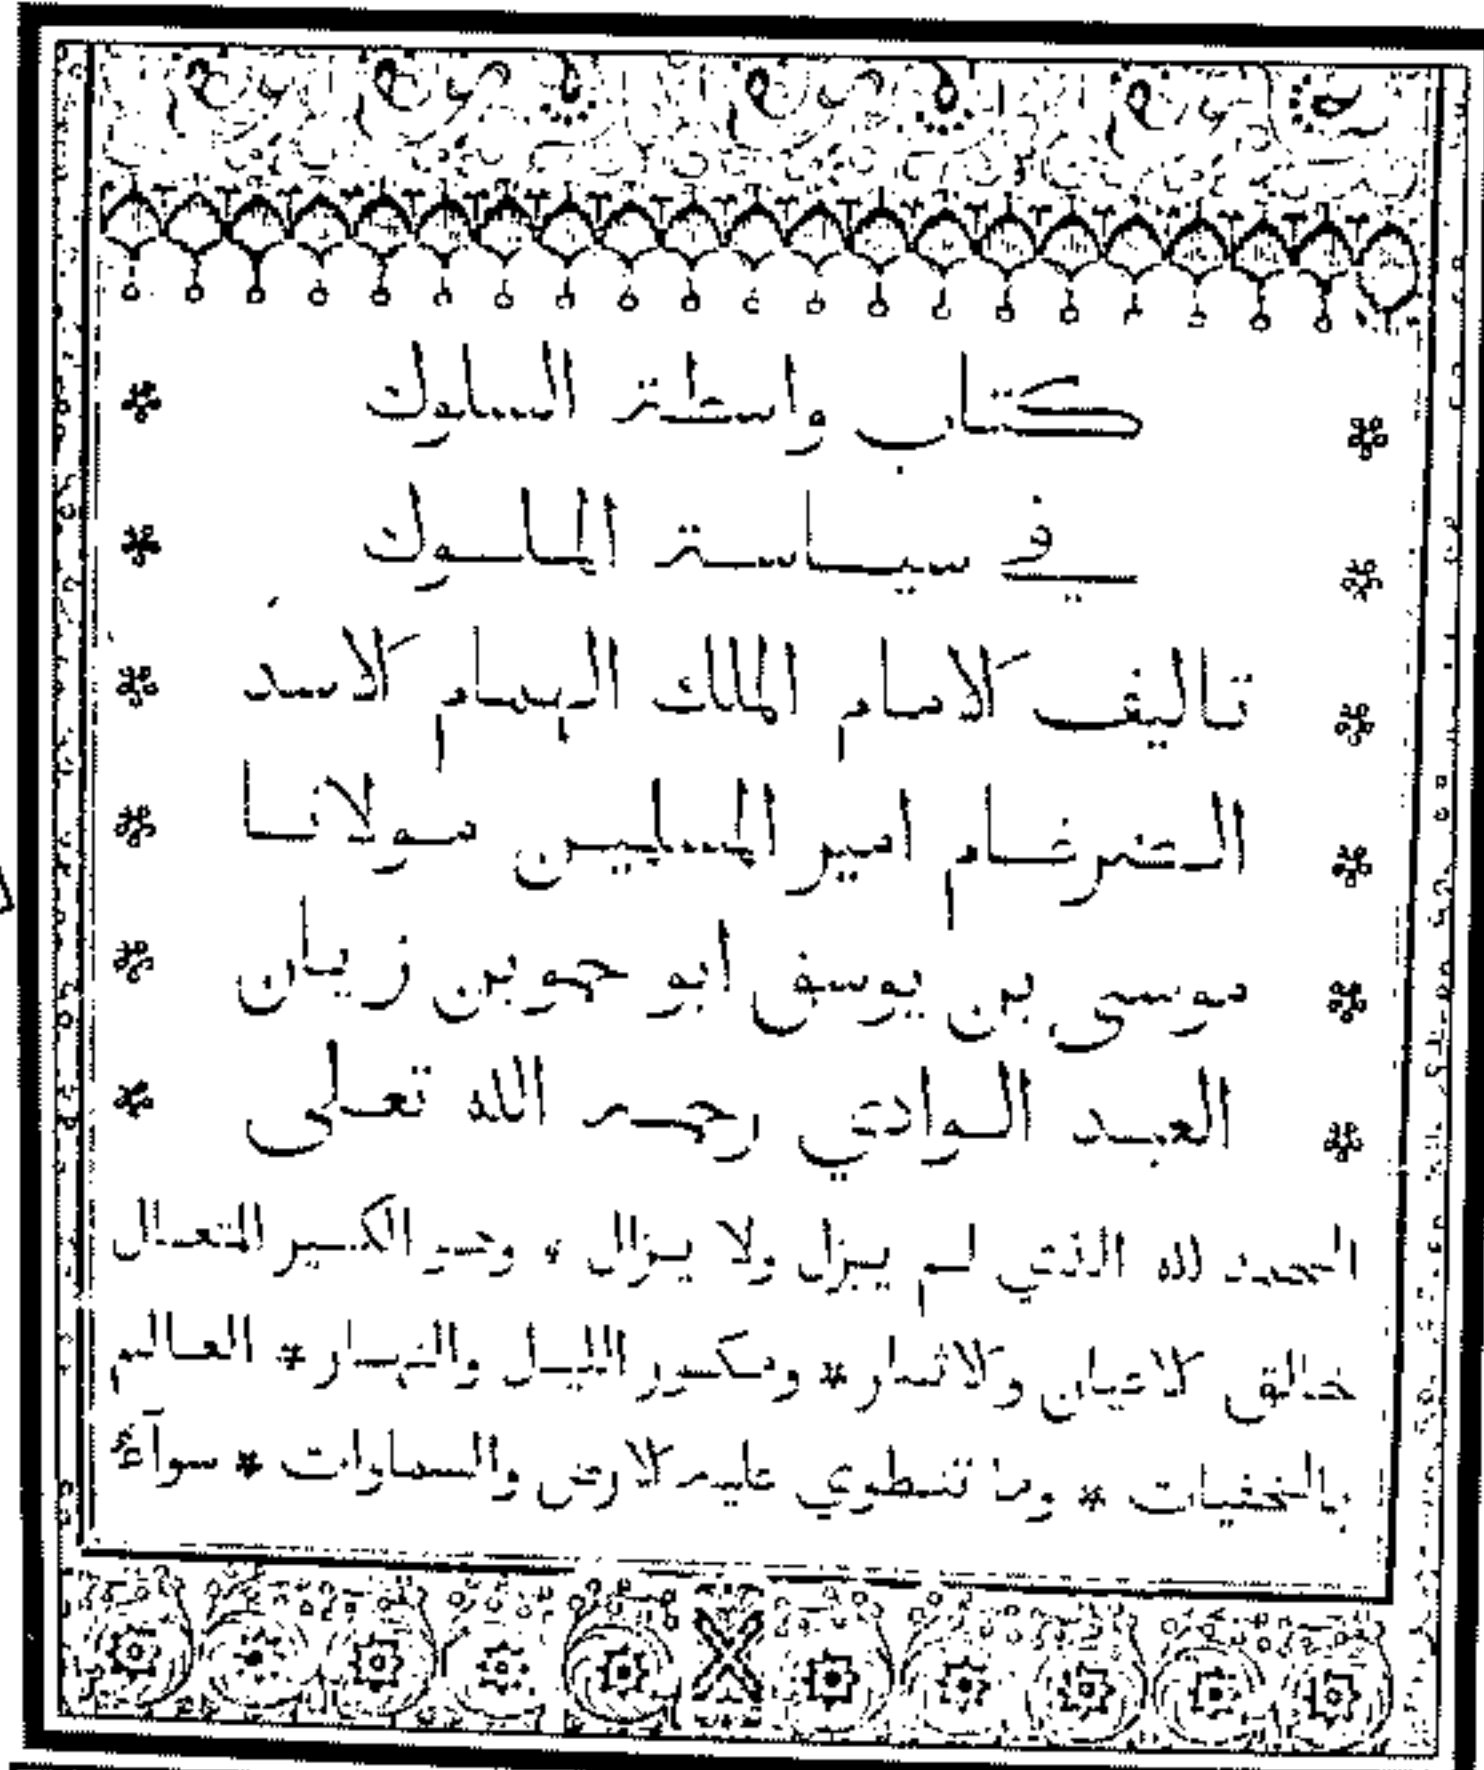 * كتاب واسطة السلوك *
* في سياسة الملوك *
* تاليف الامام الملك الهمام الاسد *
* الضرغام امير المسلمين مولانا *
* موسى بن يوسف ابو حمو بن زيان *
* العبد الوادي رحمه الله تعلى *
الحمد لله الذي لم يزل ولا يزال ، وهو الكبير المتعال
خالق الاعيان والاثار * ومكور الليل والنهار * العالم
بالخفيات * وما تنطوي عليه الارض والسماوات * سوآء